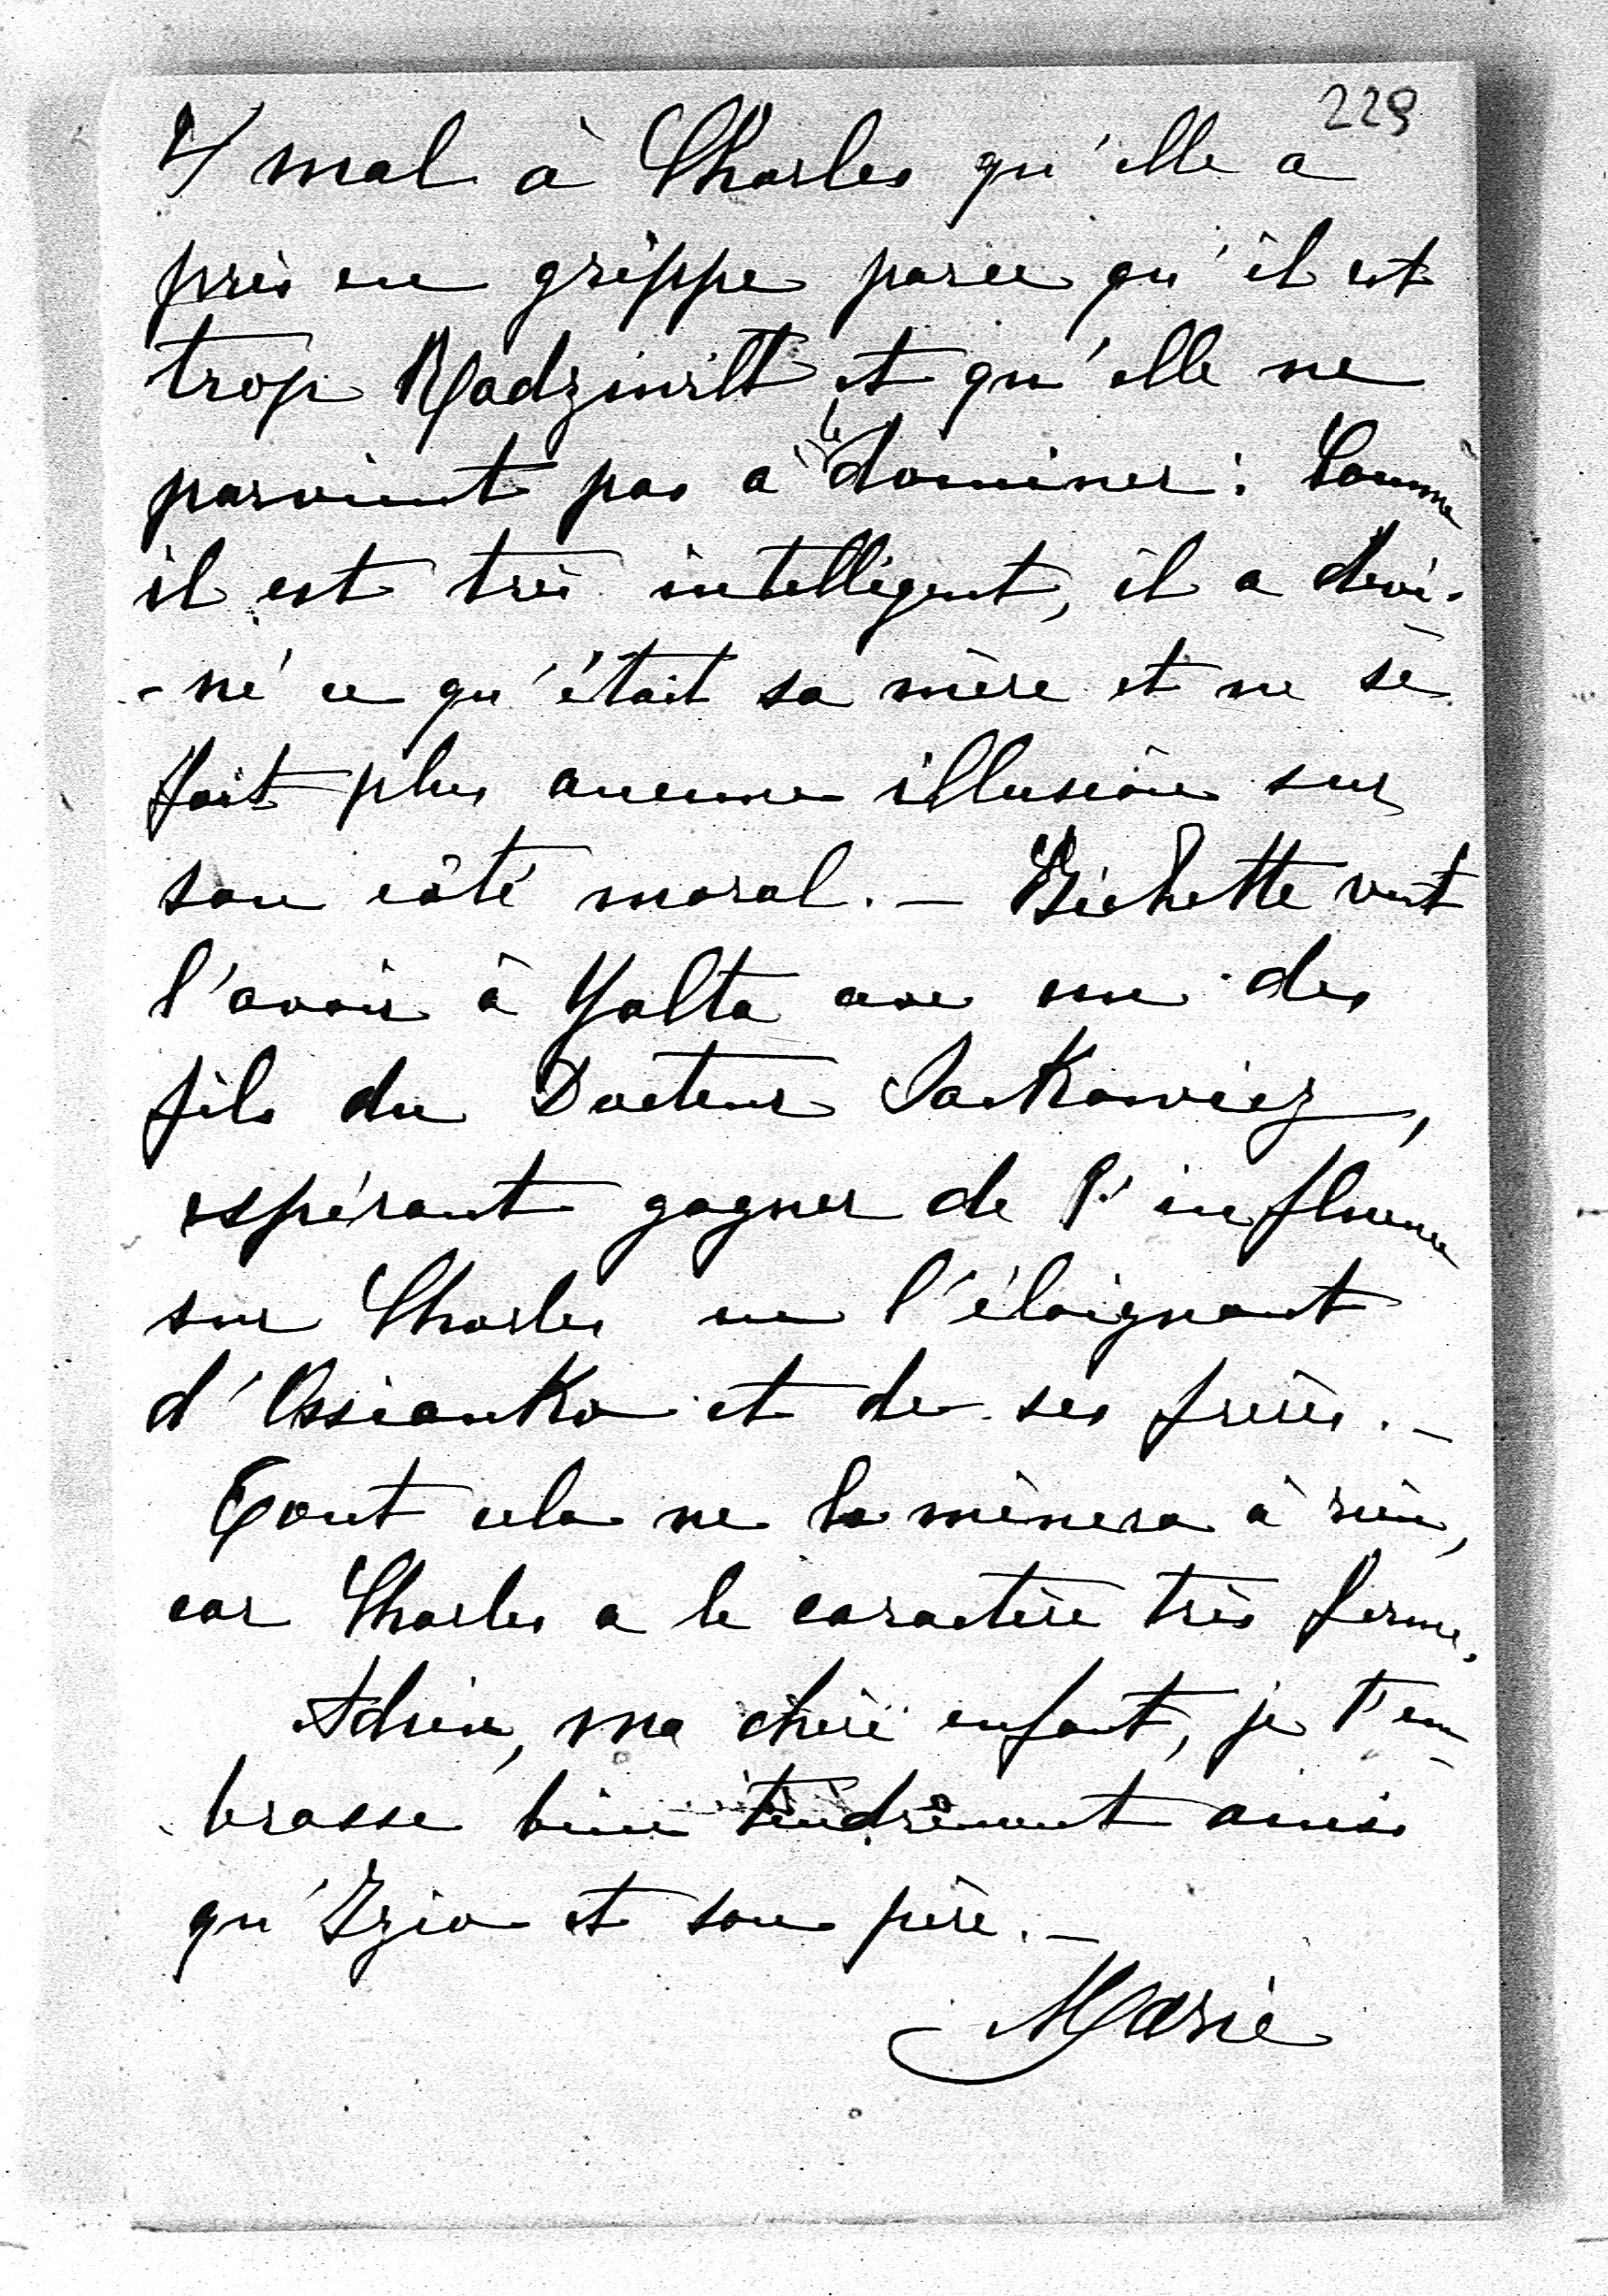 229
4/ mal à Charles qu'elle a
pris en grippe parce qu'il est
trop Radziwill et qu'elle ne
parvient pas à le dominer. Comme
il est très intelligent, il a devi-
-né ce qu'était sa mère et ne se
fait plus aucune illusion sur
son côté moral. — Bichette veut
l'avoir à Yalta avec un des
fils du Docteur
espérant gagner de l'influence
sur Charles en l'éloignant
d'Ossianko et de ses frères. —
Tout cela ne la mènera à rien,
car Charles a le caractère très ferme.
Adieu, ma chère enfant, je t'em-
brasse bien tendrement ainsi
qu'Izio et son père. —
Marie